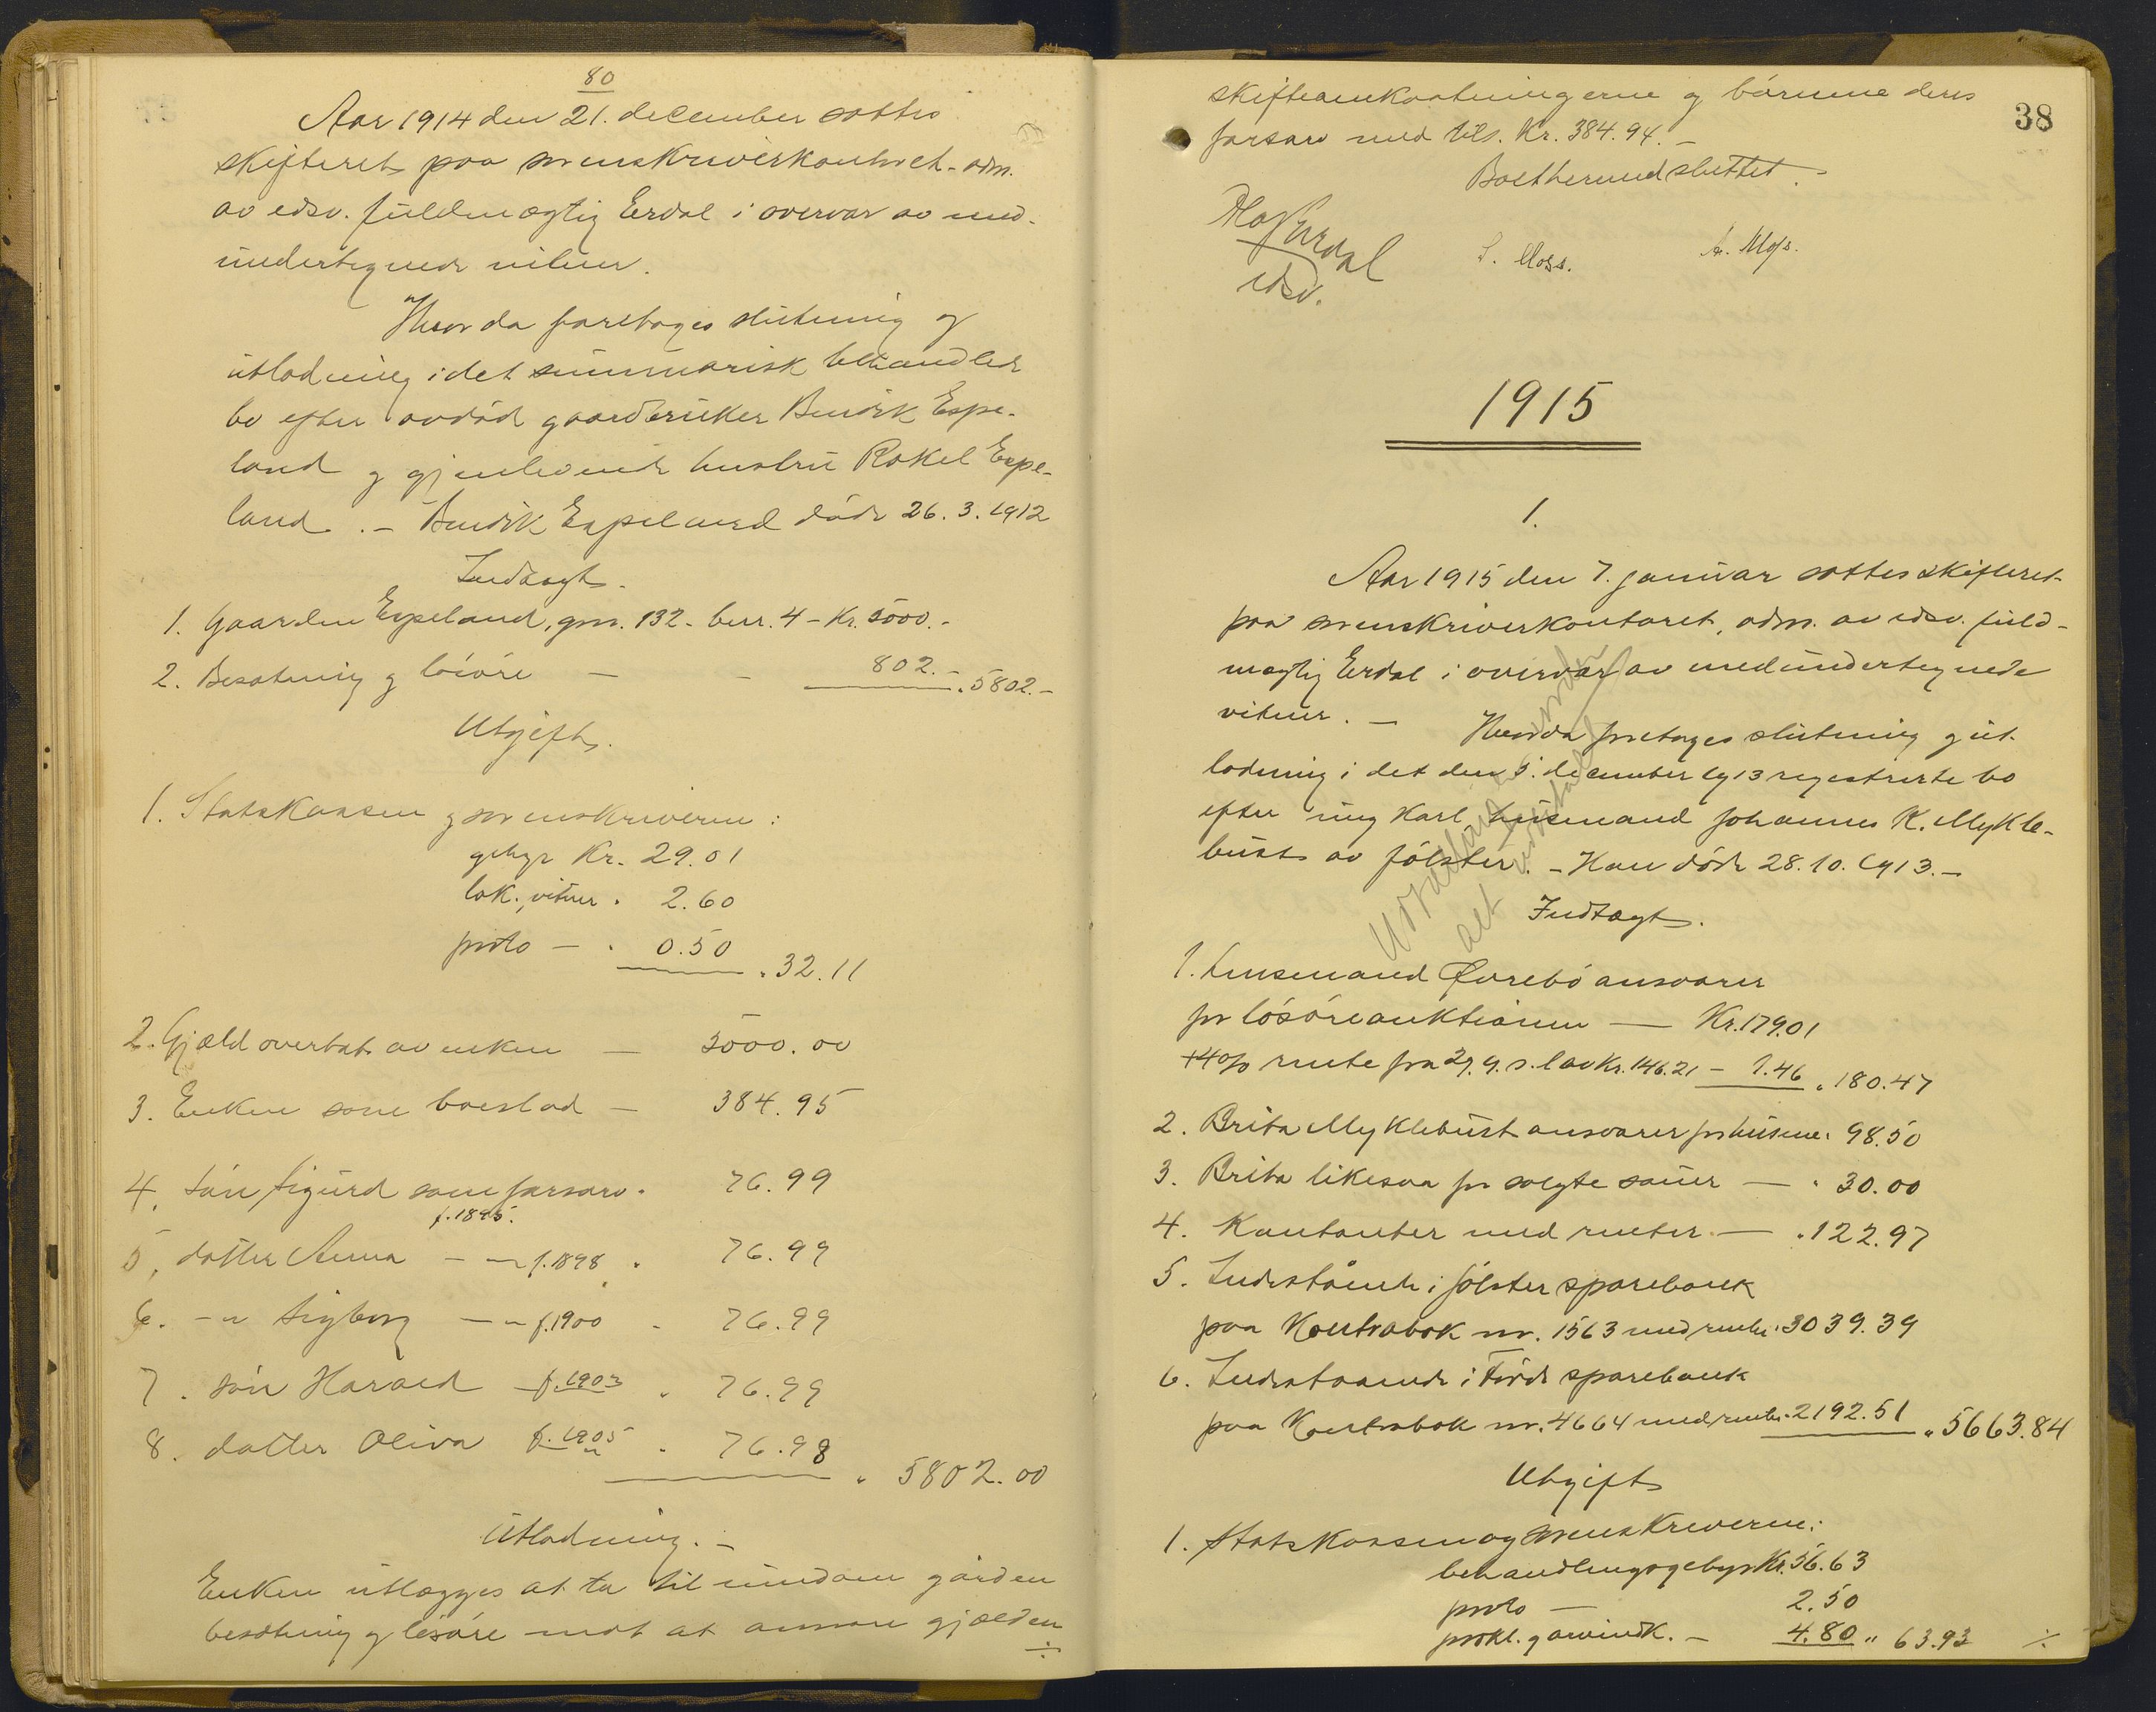 80
Aar 1914 den 21. december sattes
skifteret paa sorenskriverkontoret - adm.
av edsv. fuldmægtig Erdal i overvær av med-
undertegnede vitner.
Hvorda foretoges slutning og
utlodning i det summarisk behandlede
bo efter avdød gaardbruker Bendik Espe-
land og gjenlevende hustru Rakel Espe-
land. - Bendik Espeland døde 26.3.1912
Indtægt.
1. Gaarden Espeland, gnr. 132 - bnr. 4 - Kr. 5000.-
2. Besætning og løsøre - - 802.- " 5802.-
Utgift.
1. Statskassen og sorenskriveren:
gebyr Kr. 29.01
lok., vitner " 2.60
proto - " 0.50
" 32.11
2. Gjæld overtat av enken - 5000.00
3. Enken som boeslod - 384.95
4. søn Sigurd som farsarv " 76.99
f. 1895.
5. datter Anna - " - f. 1898 " 76.99
6. - " Sigborg - " - f. 1900 " 76.99
7. søn Harald - f. 1903 " 76.99
8. datter Oliva f. 1905 " 76.98
" 5802.00
Utlodning. -
Enken utlægges at ta til eiendom gården
besætning og løsøre mot at ansvare gjælden
÷
38
skifteomkostningerne og børnene deres
farsarv med tils. Kr. 384.94. -
Boet hermed sluttet. -
Erdal
edsv.
S. Moss. A. Moss.
1915
1.
Aar 1915 den 7. januar sattes skifteret
paa sorenskriverkontoret, adm. av edsv. fuld-
mægtig Erdal i overvær av medundertegnede
vitner. - Hvorda foretoges slutning og ut-
lodning i det den 5. december 1913 registrerte bo
efter ung Karl husmand Johannes K. Mykle-
bust av Jølster. - Han døde 28.10.1913. -
alt
Indtægt.
1. Lensmand Øvrebø ansvarer
for løsøreauktionen - Kr. 179.01
+ 4% rente fra 29.9. s. l av Kr. 146.21 - 1.46 " 180.47
2. Brita Myklebust ansvarer for husene " 98.50
3. Brita likesaa for solgte sauer - " 30.00
4. Kontanter med renter - " 122.97
5. Indestående i Jølster sparebank
paa Kontrabok nr. 1563 med renter " 3039.39
6. Indestaaende i Førde sparebank
paa Kontrabok nr. 4664 med renter " 2192.51 " 5663.84
Utgift
1. Statskassen og sorenskriveren:
behandlingsgebyr Kr. 56.63
proto - 2.50
prokl. g arvindk. - 4.80 " 63.93 ÷